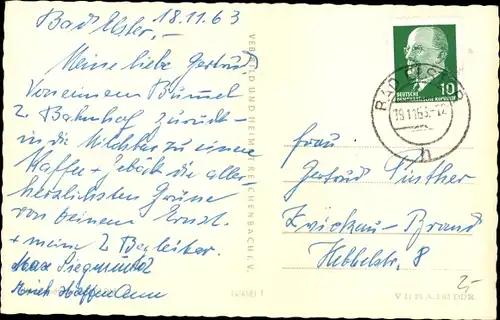 Bad Elster, - 18.11.63
Meine liebe Gertrud
Von einem Bummel
z. Bahnhof zurück -
in die Milchbar zu einem
Kaffee + Gebäck die aller-
herzlichsten Grüsse
von Deinem Ernst.
+ mein 2 Begleiter.
Max Siegmund
Erich Hoffmann
VEB BILD UND HEIMAT REICHENBACH I. V.
10
DEUTSCHE
DEMOKRATISCHE REPUBLIK
BAD ELSTER
19.11.63.-12
h
Frau
Gertrud Günther
Zwickau - Brand
Hebbelstr. 8